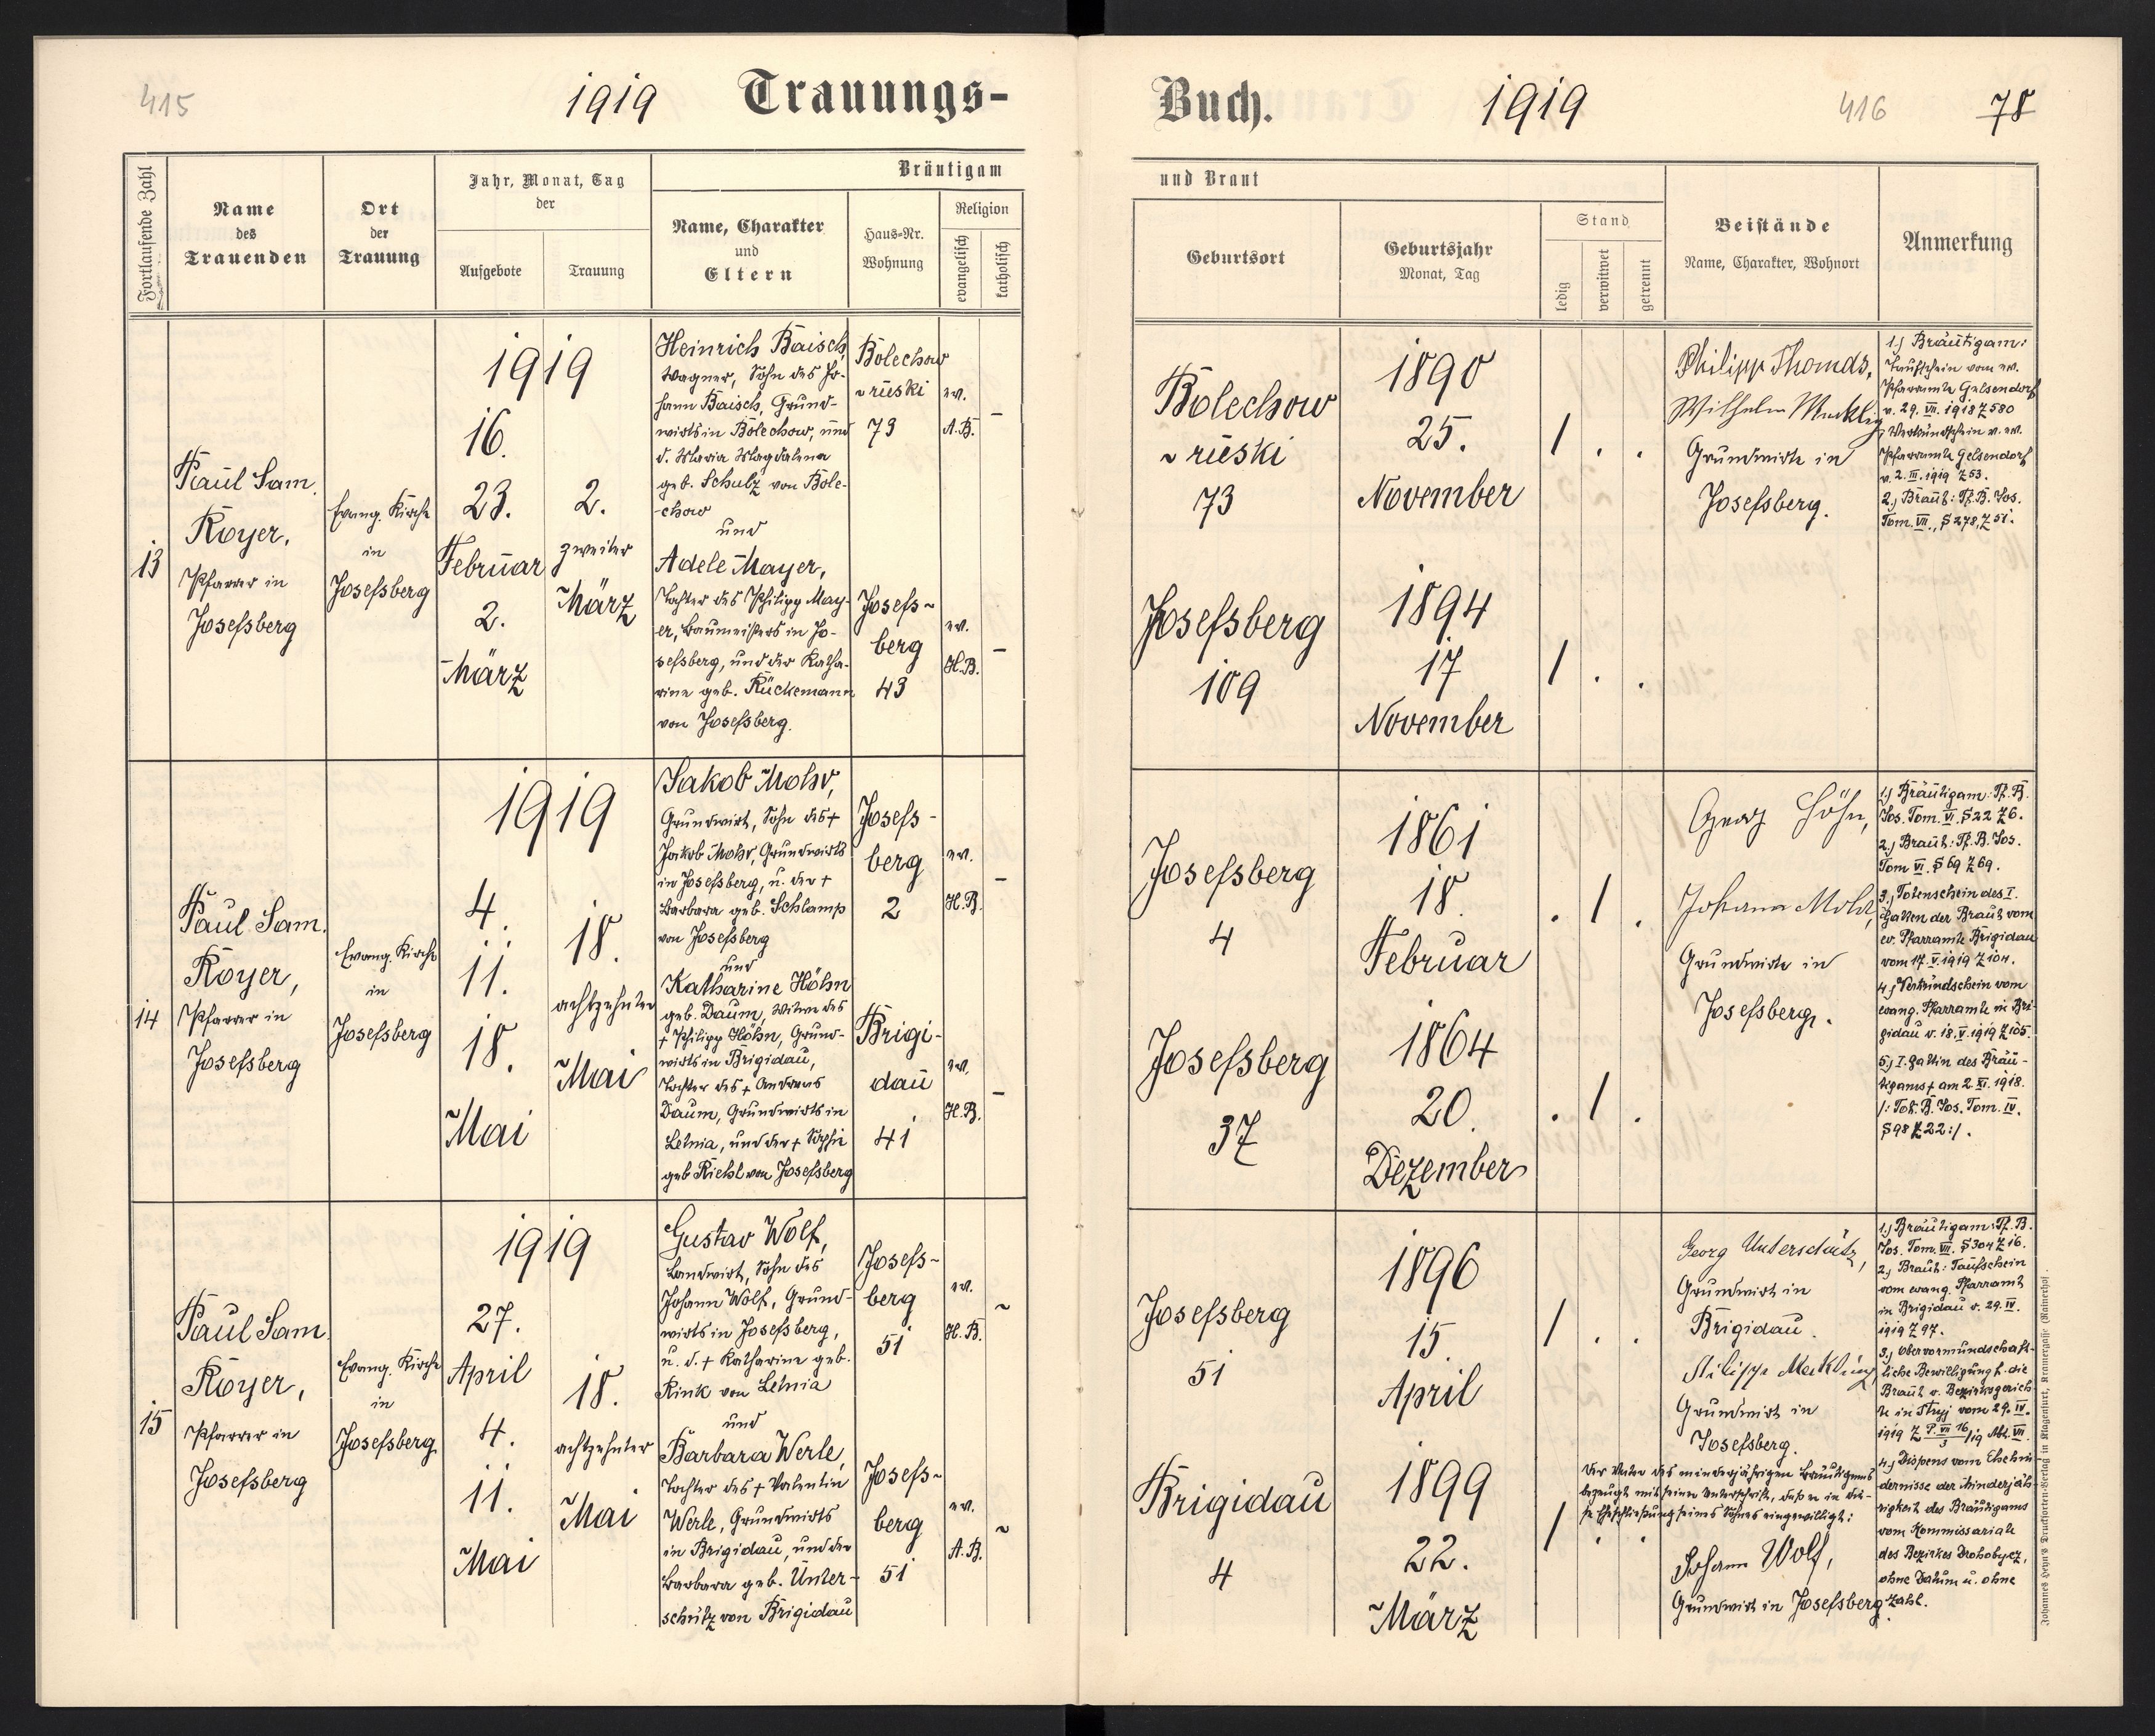 415
1919 Trauungs-
Buch. 1919
416 78
Fortlaufende Zahl
Name
des
Trauenden
Ort
der
Trauung
Jahr, Monat, Tag
der
Aufgebote
Trauung
Bräutigam
Name, Charakter
und
Eltern
Haus-Nr.
Wohnung
Religion
evangelisch
katholisch
und Braut
Geburtsort
Geburtsjahr
Monat, Tag
Stand
ledig
verwitwet
getrennt
Beistände
Name, Charakter, Wohnort
Anmerkung
13
Paul Sam.
Royer,
Pfarrer in
Josefsberg
Evang. Kirche
in
Josefsberg
1919
16.
23.
Februar
2.
März
2.
zweiter
März
Heinrich Baisch,
Wagner, Sohn des Jo-
hann Baisch, Grund-
wirts in Bolechow, und
d. Maria Magdalena
geb. Schulz von Bole-
chow
und
Adele Mayer,
Tochter des Philipp May-
er, Baumeisters in Jo-
sefsberg, und der Katha-
rine geb. Rückemann
von Josefsberg.
Bolechow
~ruski
73
Josefs-
berg
43
ev.
A.B.
–
ev.
H.B.
–
Bolechow
~ruski
73
Josefsberg
109
1890
25.
November
1894
17
November
1 . .
1 . .
Philipp Thomas,
Wilhelm Mecklig,
Grundwirte in
Josefsberg.
1.) Bräutigam:
Taufschein vom ev.
Pfarramte Gelsendorf
v. 29. VII. 1918 Z 580
Verkündschein v. ev.
Pfarramte Gelsendorf
v. 2. III. 1919 Z 53.
2.) Braut: Tf. B. Jos.
Tom. VII., S 278, Z 51.
14
Paul Sam.
Royer,
Pfarrer in
Josefsberg
Evang. Kirche
in
Josefsberg
1919
4.
11.
18.
Mai
18.
achtzehnter
Mai
Jakob Mohr,
Grundwirt, Sohn des +
Jakob Mohr, Grundwirts
in Josefsberg, u. der +
Barbara geb. Schlamp
von Josefsberg
und
Katharine Höhn
geb. Daum, Witwe des
+ Philipp Höhn, Grund-
wirts in Brigidau,
Tochter des + Andreas
Daum, Grundwirts in
Letnia, und der + Sophie
geb Riehl von Josefsberg
Josefs-
berg
2
Brigi-
dau
41
ev.
H.B.
–
ev.
H.B.
–
Josefsberg
4
Josefsberg
37
1861
18.
Februar
1864
20.
Dezember
. 1 .
. 1 .
Georg Höhn,
Johann Mohr,
Grundwirte in
Josefsberg.
1.) Bräutigam: Tf. B.
Jos. Tom. VI. S 22 Z 6.
2.) Braut: Tf. B. Jos.
Tom VI. S 69 Z 69.
3.) Totenschein des I.
Gatten der Braut vom
ev. Pfarramte Brigidau
vom 17. V. 1919 Z 104.
4.) Verkündschein vom
evang. Pfarramte in Bri-
gidau v. 18. V. 1919 Z 105.
5.) I. Gattin des Bräu-
tigams + am 2. XI. 1918.
/: Tot. B. Jos. Tom. IV.
S 98 Z 22 :/.
15
Paul Sam.
Royer,
Pfarrer in
Josefsberg
Evang. Kirche
in
Josefsberg
1919
27.
April
4.
11.
Mai
18.
achtzehnter
Mai
Gustav Wolf,
Landwirt, Sohn des
Johann Wolf, Grund-
wirts in Josefsberg,
u. d. + Katharine geb.
Rink von Letnia
und
Barbara Werle,
Tochter des + Valentin
Werle, Grundwirts
in Brigidau, und der
Barbara geb. Unter-
schütz von Brigidau
Josefs~
berg
51
Josefs~
berg
51
ev.
H.B.
~
ev.
A.B.
~
Josefsberg
51
Brigidau
4
1896
15.
April
1899
22.
März
1 . .
1 . .
Georg Unterschütz,
Grundwirt in
Brigidau.
Philipp Mecklig,
Grundwirt in
Josefsberg.
Der Vater des minderjährigen Bräutigams
bezeugt mit seiner Unterschrift, daß er in die-
se Eheschließung seines Sohnes eingewilligt:
Johann Wolf,
Grundwirt in Josefsberg
1.) Bräutigam: Tf. B.
Jos. Tom. VII. S 304 Z 16.
2.) Braut: Taufschein
vom evang. Pfarramt
in Brigidau v. 29. IV.
1919 Z 97.
3.) Obervormundschaft-
liche Bewilligung f. die
Braut v. Bezirksgerich-
te in Stryj vom 29. IV.
1919 Z P. VII 16/3 /19 Abt. VII.
4.) Dispens vom Ehehin-
dernisse der Minderjäh-
rigkeit des Bräutigams
vom Kommissariate
des Bezirkes Drohobycz,
ohne Datum u. ohne
Zahl.
Johannes Heyn's Drucksorten-Verlag in Klagenfurt, Kramergasse (Rainerhof).